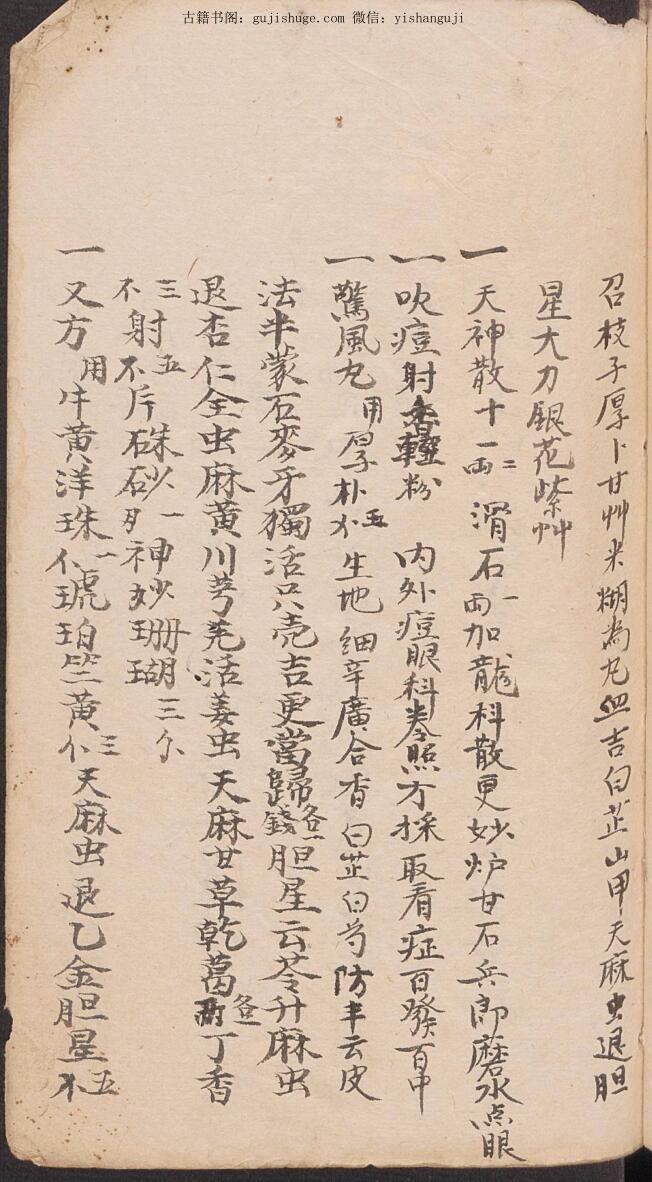 古籍书阁：gujishuge.com 微信：yishanguji
召枝子厚卜甘艸米糊為丸血吉白芷山甲天麻虫退胆
星大力銀花紫艸
一 天神散十一两二 滑石一两加龍科散更妙炉甘石兵郎磨水点眼
一 吹痘射香輕粉 内外痘眼科叁照方採取看症百發百中
一 驚風丸 用厚朴五分生地細辛廣合香白芷白芍防丰云皮
法半蒙石麥牙獨活只壳吉更當歸各一錢胆星云苓升麻虫
退杏仁全虫麻黄川芎羌活姜虫天麻甘草乾葛各一两丁香
三不射五不片硃砂一神妙珊瑚三分
一 又方 用牛黄洋珠一分琥珀竺黄三分天麻虫退乙金胆星五不